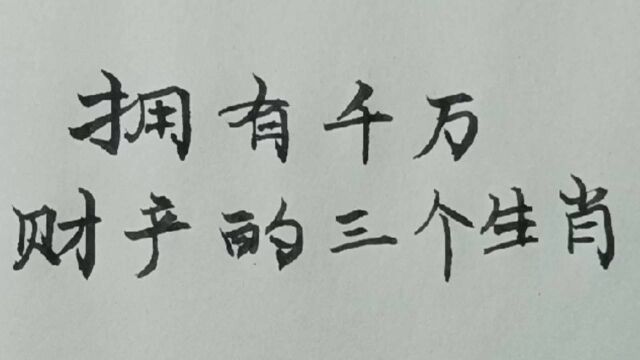 拥有千万
财产的三个生肖